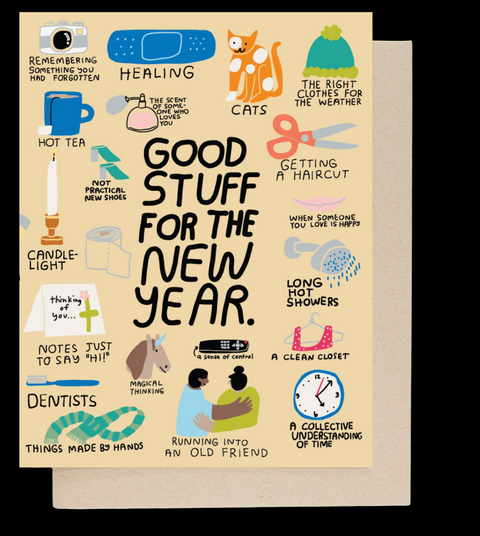 REMEMBERING
SOMETHING YOU
HAD FORGOTTEN
HEALING
CATS
THE RIGHT
CLOTHES FOR
THE WEATHER
HOT TEA
THE SCENT
OF SOME-
ONE WHO
LOVES
YOU
GETTING
A HAIRCUT
NOT
PRACTICAL
NEW SHOES
GOOD
STUFF
FOR THE
NEW
YEAR.
WHEN SOMEONE
YOU LOVE IS HAPPY
CANDLE-
LIGHT
LONG
HOT
SHOWERS
thinking
of
you...
NOTES JUST
TO SAY "HI!"
MAGICAL
THINKING
a sense of control
A CLEAN CLOSET
DENTISTS
THINGS MADE BY HANDS
RUNNING INTO
AN OLD FRIEND
12
3
6
9
A COLLECTIVE
UNDERSTANDING
OF TIME